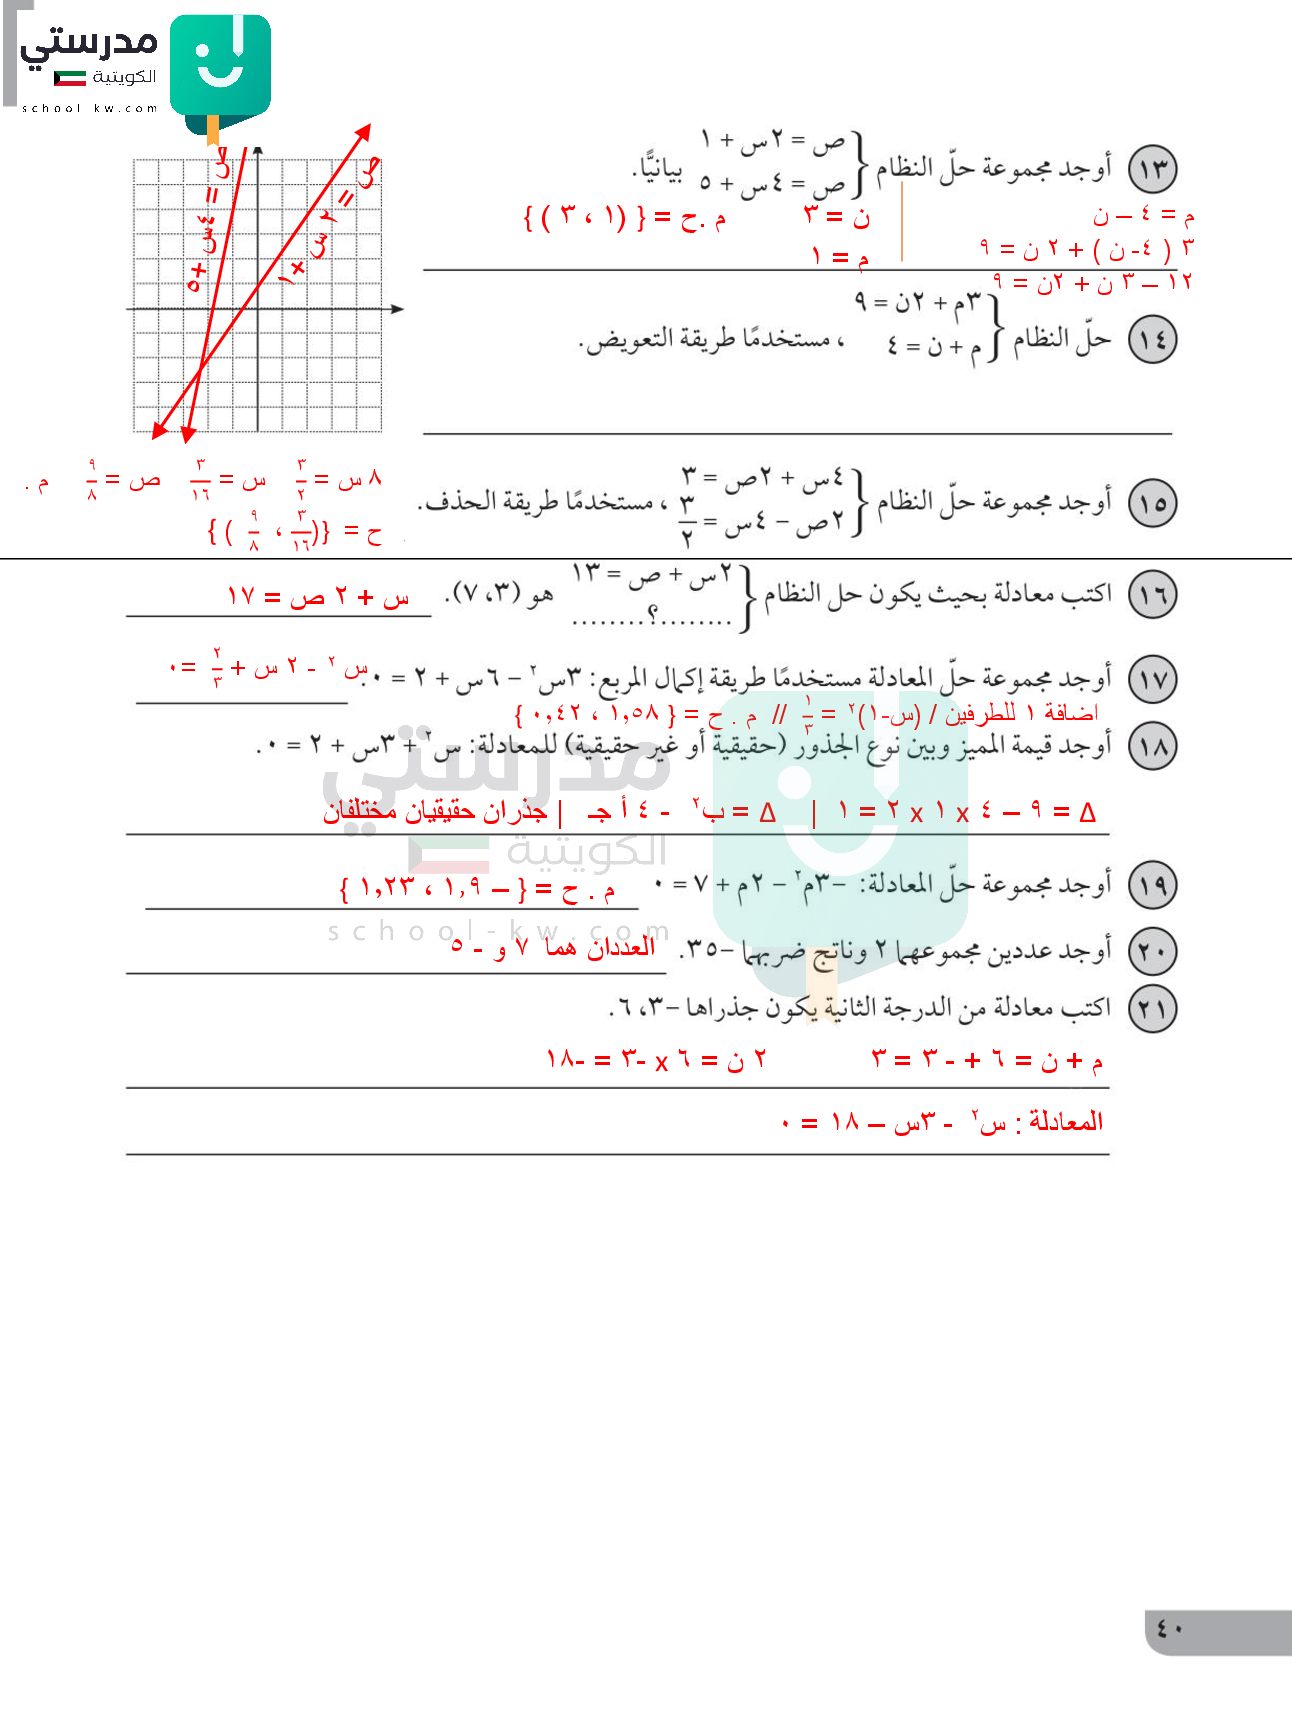 مدرستي
الكويتية
school kw.com
١٣ أوجد مجموعة حلّ النظام { ص = ٢س + ١
ص = ٤س + ٥ بيانيًّا.
م = ٤ – ن
٣ ( ٤- ن ) + ٢ ن = ٩
١٢ – ٣ ن + ٢ن = ٩
ن = ٣ م .ح = { (١ ، ٣ ) }
م = ١
ص = ٤س +٥
ص = ٢ س +١
١٤ حلّ النظام { ٣م + ٢ن = ٩
م + ن = ٤ ، مستخدمًا طريقة التعويض.
١٥ أوجد مجموعة حلّ النظام { ٤س + ٢ص = ٣
٢ص – ٤س = ٣/٢ ، مستخدمًا طريقة الحذف.
٨ س = ٣/٢ س = ٣/١٦ ص = ٩/٨ م .
ح = {(٣/١٦ ، ٩/٨ ) }
١٦ اكتب معادلة بحيث يكون حل النظام { ٢س + ص = ١٣
........؟........ هو (٣، ٧).
س + ٢ ص = ١٧
١٧ أوجد مجموعة حلّ المعادلة مستخدمًا طريقة إكمال المربع: ٣س٢ – ٦س + ٢ = ٠.
س ٢ - ٢ س + ٢/٣ =٠
اضافة ١ للطرفين / (س-١)٢ = ١/٣ // م . ح = { ١,٥٨ ، ٠,٤٢ }
١٨ أوجد قيمة المميز وبين نوع الجذور (حقيقية أو غير حقيقية) للمعادلة: س٢ + ٣س + ٢ = ٠.
Δ = ٩ – ٤ x ١ x ٢ = ١ | Δ = ب٢ - ٤ أ جـ | جذران حقيقيان مختلفان
مدرستي
الكويتية
school-kw.com
١٩ أوجد مجموعة حلّ المعادلة: –٣م٢ – ٢م + ٧ = ٠
م . ح = { – ١,٩ ، ١,٢٣ }
٢٠ أوجد عددين مجموعهما ٢ وناتج ضربهما –٣٥.
العددان هما ٧ و - ٥
٢١ اكتب معادلة من الدرجة الثانية يكون جذراها –٣، ٦.
م + ن = ٦ + - ٣ = ٣ ٢ ن = ٦ x -٣ = -١٨
المعادلة : س٢ - ٣س – ١٨ = ٠
٤٠